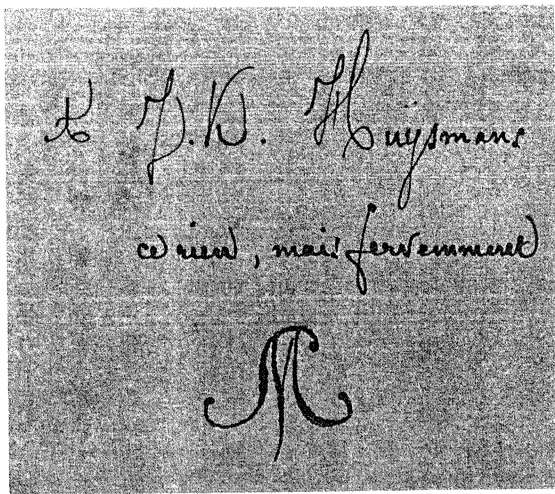 A J.K. Huÿsmans
ce rien, mais fervemment
M